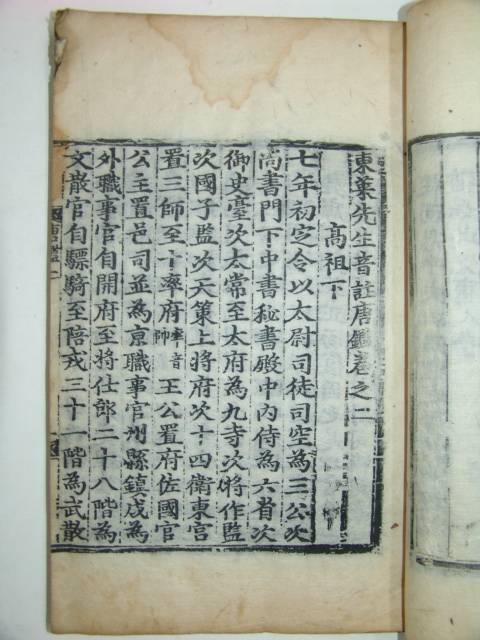 東萊先生音註唐鑑卷之二
高祖下
七年初定令以太尉司徒司空為三公次
尚書門下中書秘書殿中內侍為六省次
御史臺次太常至太府為九寺次將作監
次國子監次天策上將府次十四衛東宮
置三師至十率府率音帥王公置府佐國官
公主置邑司並為京職事官州縣鎮戍為
外職事官自開府至將仕郎二十八階為
文散官自驃騎至陪戎三十一階為武散